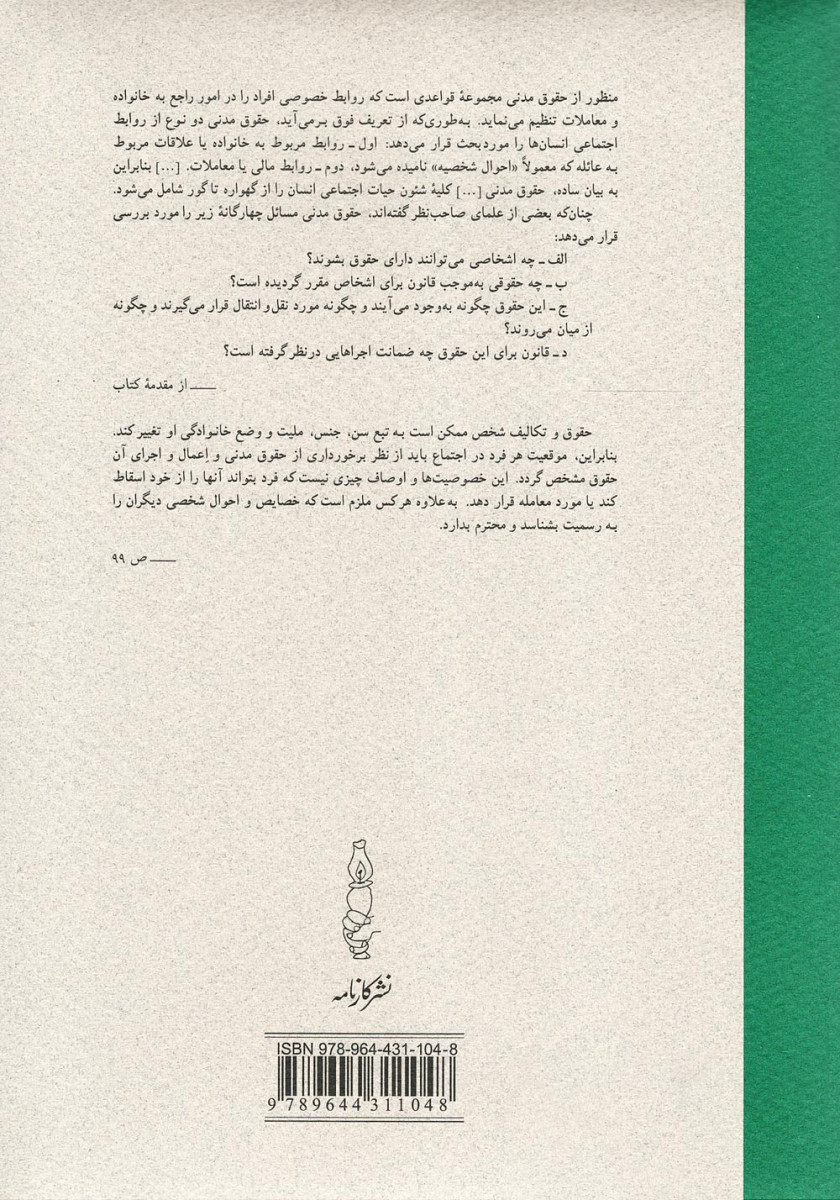 منظور از حقوق مدنی مجموعهٔ قواعدی است که روابط خصوصی افراد را در امور راجع به خانواده
و معاملات تنظیم می‌نماید. به‌طوری‌که از تعریف فوق برمی‌آید، حقوق مدنی دو نوع از روابط
اجتماعی انسان‌ها را مورد بحث قرار می‌دهد: اول ـ روابط مربوط به خانواده یا علاقات مربوط
به عائله که معمولاً «احوال شخصیه» نامیده می‌شود، دوم ـ روابط مالی یا معاملات. [...] بنابراین
به بیان ساده، حقوق مدنی [...] کلیهٔ شئون حیات اجتماعی انسان را از گهواره تا گور شامل می‌شود.
چنان‌که بعضی از علمای صاحب‌نظر گفته‌اند، حقوق مدنی مسائل چهارگانهٔ زیر را مورد بررسی
قرار می‌دهد:
الف ـ چه اشخاصی می‌توانند دارای حقوق بشوند؟
ب ـ چه حقوقی به‌موجب قانون برای اشخاص مقرر گردیده است؟
ج ـ این حقوق چگونه به‌وجود می‌آیند و چگونه مورد نقل و انتقال قرار می‌گیرند و چگونه
از میان می‌روند؟
د ـ قانون برای این حقوق چه ضمانت اجراهایی درنظر گرفته است؟
ــــ از مقدمهٔ کتاب
حقوق و تکالیف شخص ممکن است به تبع سن، جنس، ملیت و وضع خانوادگی او تغییر کند.
بنابراین، موقعیت هر فرد در اجتماع باید از نظر برخورداری از حقوق مدنی و اِعمال و اجرای آن
حقوق مشخص گردد. این خصوصیت‌ها و اوصاف چیزی نیست که فرد بتواند آنها را از خود اسقاط
کند یا مورد معامله قرار دهد. به‌علاوه هرکس ملزم است که خصایص و احوال شخصی دیگران را
به رسمیت بشناسد و محترم بدارد.
ــــ ص ۹۹
نشر کارنامه
ISBN 978-964-431-104-8
9 789644 311048